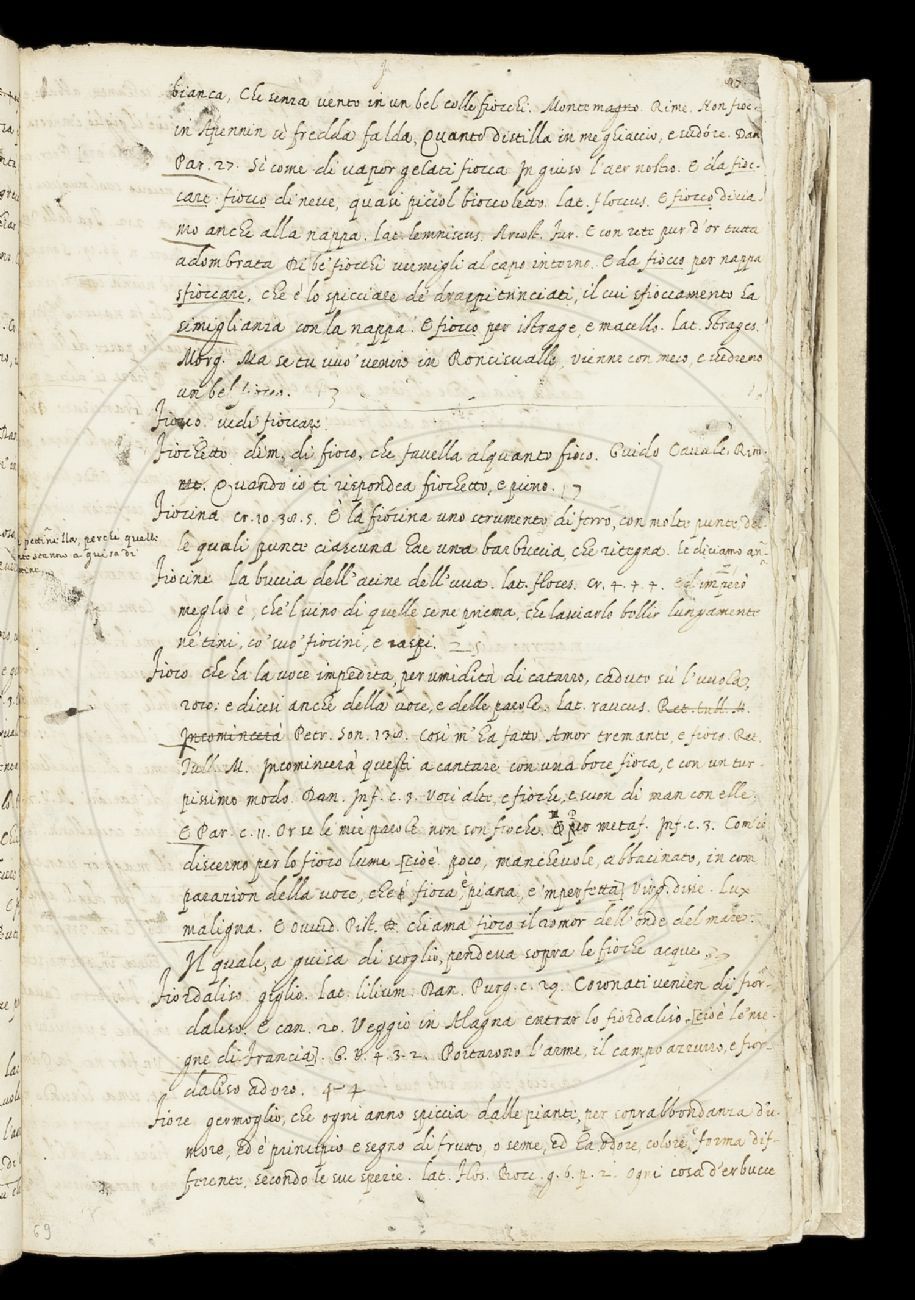 bianca, Che senza vento in un bel colle fiocchi. Montemagno. Rime. Non fioc-
in Apennin sì fredda falda, Quanto distilla in me ghiaccio, e sudore. Dan
Par. 27. Sì come di vapor gelati fiocca In giuso l'aer nostro. E da fioc-
care fiocco di neve, quasi picciol bioccoletto. lat. floccus. E fiocco dicia-
mo anche alla nappa. lat. lemniscus. Ariost. Fur. E con rete pur d'or tutta
adombrata Di be' fiocchi vermigli al capo intorno. E da fiocco per nappa
sfioccare, che è lo spicciare de' drappi trinciati, il cui sfioccamento ha
simiglianza con la nappa. E fiocco per istrage, e macello. lat. strages.
Morg. Ma se tu vuo' venire in Roncisvalle, Vienne con meco, e vedremo
un bel fiocco. 13
Fiocco. vedi fioccare.
Fiochetto. dim. di fioco, che favella alquanto fioco. Guido Cavalc. Rim.
Quando io ti rispondea fiochetto, e piano. 17
Fiocina cr. 10. 38. 5. È la fiocina uno strumento di ferro, con molte punte del-
le quali punte ciascuna hae una barbuccia che ritegna. le diciamo an-
pettinella, perche quelle
stanno a guisa di
Fiocine. La buccia dell'acine dell'uva. lat. floces. Cr. 4. 4. 4. E imperò
meglio è, che'l vino di quelle se ne priema, che lasciarlo bollir lungamente
ne' tini, co' suo' fiocini, e raspi. 25
Fioco che ha la voce impedita, per umidità di catarro, caduto sù l'uvola,
roco: e dicesi anche della voce, e delle parole. lat. raucus. Ret. Tull. M.
Incomincerà Petr. Son. 138. Così m'ha fatto Amor tremante, e fioco. Ret.
Tull. M. Incomincerà questi a cantare con una boce fioca, e con un tur-
pissimo modo. Dan. Inf. c. 3. Voci alte, e fioche, e suon di man con elle.
E Par. c. 11. Or se le mie parole non son fioche. per metaf. Inf. c. 3. Com'io
discerno per lo fioco lume [cioè poco, manchevole, abbacinato, in com
parazion della voce, che è fioca, piana, e 'mperfetta] Virg. disse. Lux
maligna. E Ovvid. Pist. chiama fioco il romor dell'onde del mare.
Il quale, a guisa di scoglio, pendeva sopra le fioche acque.
Fiordaliso giglio. lat. lilium. Dan. Purg. c. 29. Coronati venien di fior-
daliso. E can. 20. Veggio in Alagna entrar lo fiordaliso. [cioè le 'nse-
gne di Francia]. G. V. 4. 3. 2. Portarono l'arme, il campo azzurro, e fior-
daliso ad oro. 4-4
Fiore germoglio, che ogni anno spiccia dalle piante, per soprabbondanza d'u-
more, ed è principio e segno di frutto, o seme, ed ha odore, colore, e forma dif-
ferente, secondo le sue spezie. lat. flos. Bocc. g. 6. p. 2. Ogni cosa d'erbucce
69